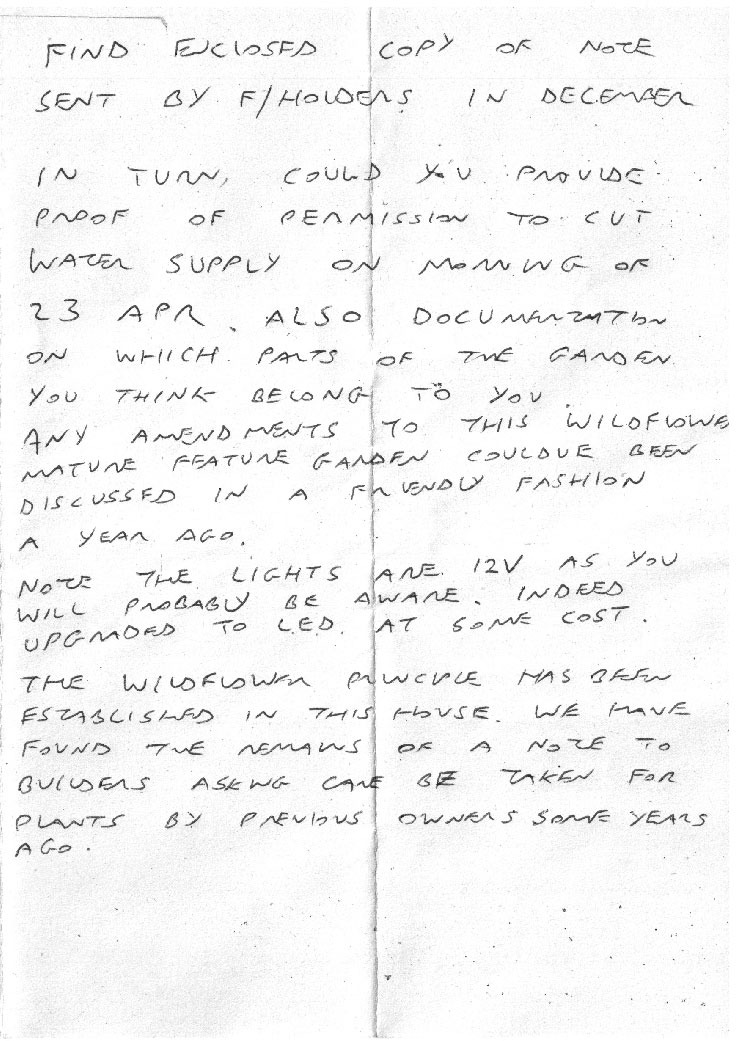 FIND ENCLOSED COPY OF NOTE
SENT BY F/HOLDERS IN DECEMBER
IN TURN, COULD YOU PROVIDE
PROOF OF PERMISSION TO CUT
WATER SUPPLY ON MORNING OF
23 APR. ALSO DOCUMENTATION
ON WHICH PARTS OF THE GARDEN
YOU THINK BELONG TO YOU.
ANY AMENDMENTS TO THIS WILDFLOWE
MATURE FEATURE GARDEN COULDVE BEEN
DISCUSSED IN A FRIENDLY FASHION
A YEAR AGO.
NOTE THE LIGHTS ARE 12V AS YOU
WILL PROBABLY BE AWARE. INDEED
UPGRADED TO L.E.D. AT SOME COST.
THE WILDFLOWER PRINCIPLE HAS BEEN
ESTABLISHED IN THIS HOUSE. WE HAVE
FOUND THE REMAINS OF A NOTE TO
BUILDERS ASKING CARE BE TAKEN FOR
PLANTS BY PREVIOUS OWNERS SOME YEARS
AGO.